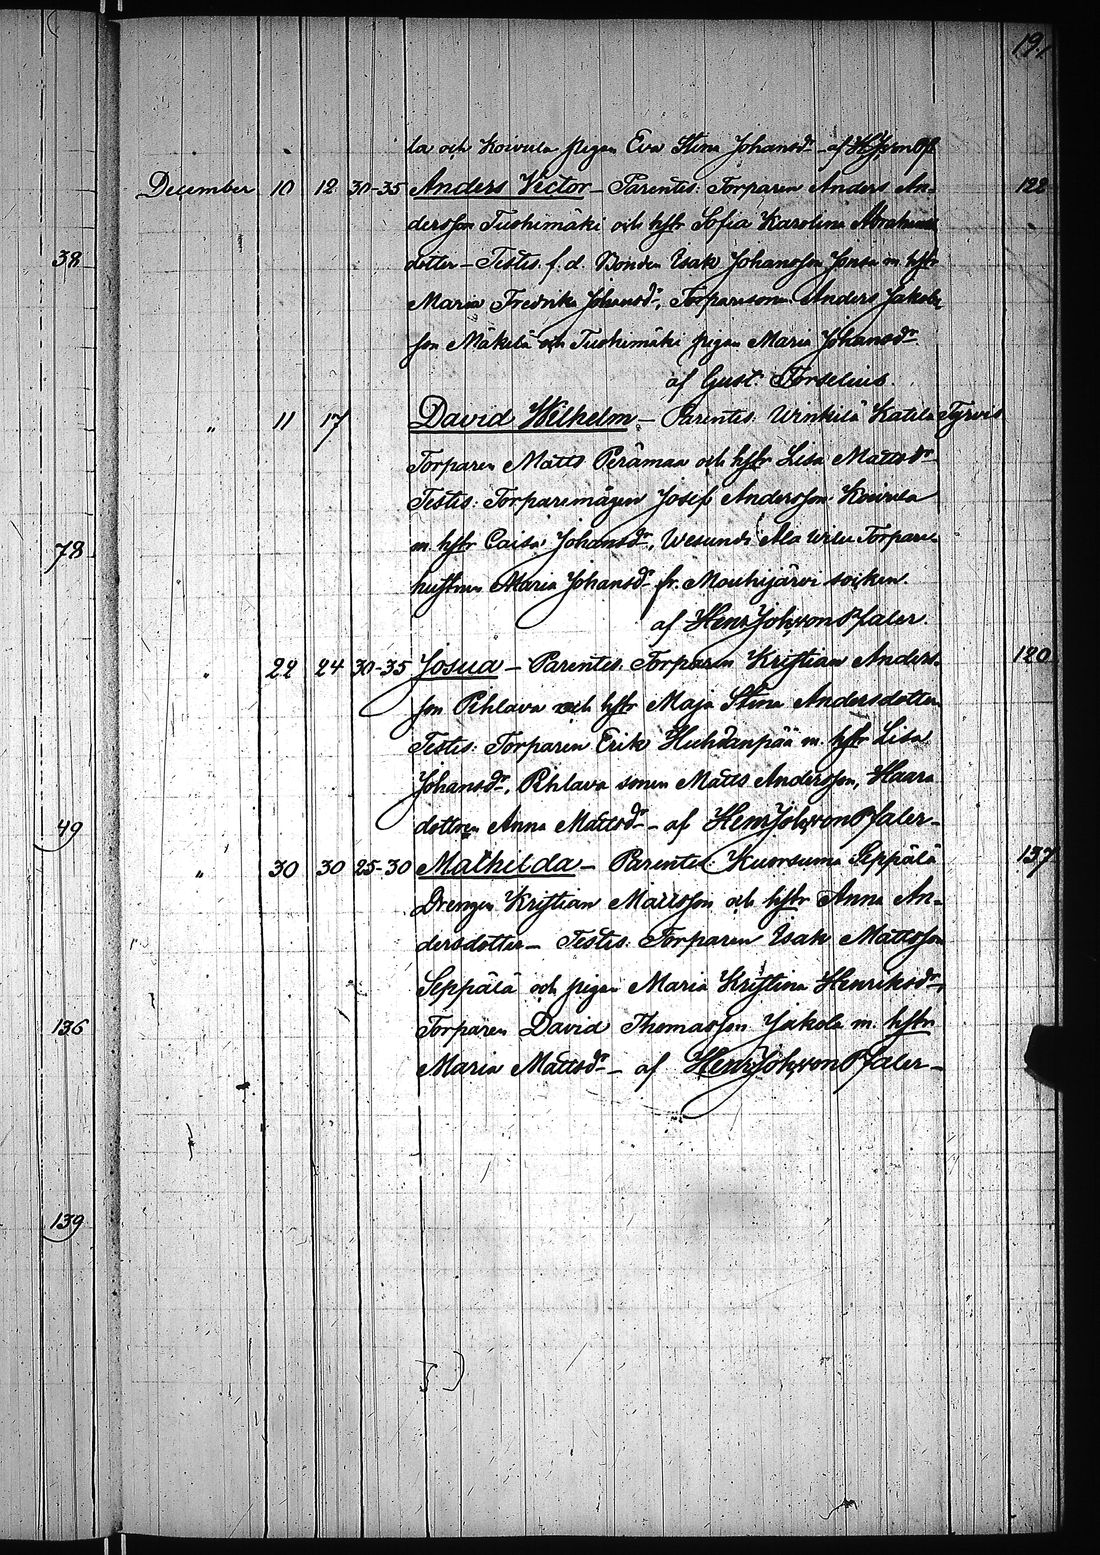 191
la och Koivula pigan Eva Stina Johansdr - af HJvonPfl
December 10 12 30-35 Anders Victor - Parentes: Torparen Anders An- 122
dersson Tuohimäki och hstr Sofia Karolina Abrahams
38
dotter - Testes. f.d. Bonden Isak Johansson Jansa m. hstr
Maria Fredrika Johansdr, Torparesonen Anders Jakobs
son Mäkelä och Tuohimäki pigan Maria Johansdr.
af Gust. Forselius.
" 11 17 David Wilhelm - Parentes. Winkilä Katila Tyrvis
Torparen Matts Perämaa och hstr Lisa Mattsdr
Testes: Torparemågen Josef Andersson Koivula
78
m. hstr Caisa Johansdr, Wesunds Ala Wilu Torpare
hustrun Maria Johansdr fr. Mouhijärvi socken.
af HenrJohvonPfaler.
" 22 24 30-35 Josua - Parentes. Torparen Kristian Anders- 120
son Pihlava och hstr Maja Stina Andersdotter
Testes: Torparen Erik Huhdanpää m. hstr Lisa
Johansdr, Pihlava sonen Matts Andersson, Haara
49
dottren Anna Mattsdr - af HenrJohvonPfaler-
" 30 30 25-30 Mathilda - Parentes: Kuorsuma Seppälä 137
Drengen Kristian Mattsson och hstr Anna An-
dersdotter - Testes. Torparen Isak Mattsson
Seppälä och pigan Maria Kristina Henriksdr,
136
Torparen David Thomasson Jakola m. hstr
Maria Mattsdr - af HenrJohvonPfaler -
139